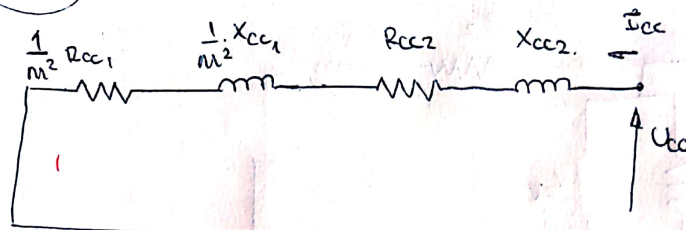 1/m² Rcc₁
1/m² . Xcc₁
Rcc2
Xcc2.
Icc
Ucc